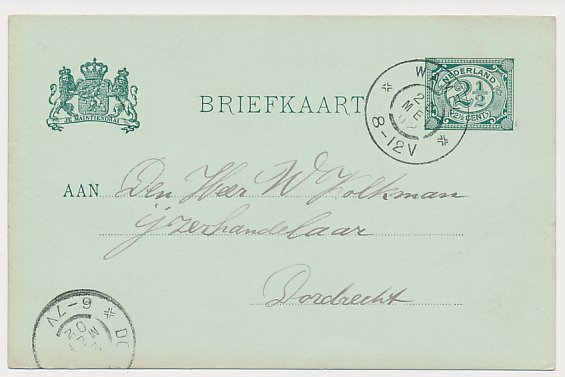 JE MAINTIENDRAI
BRIEFKAART
NEDERLAND
2½
2½ CENT
8-12V
AAN Den Heer W Volkman
ijzerhandelaar
Dordrecht
6-7V